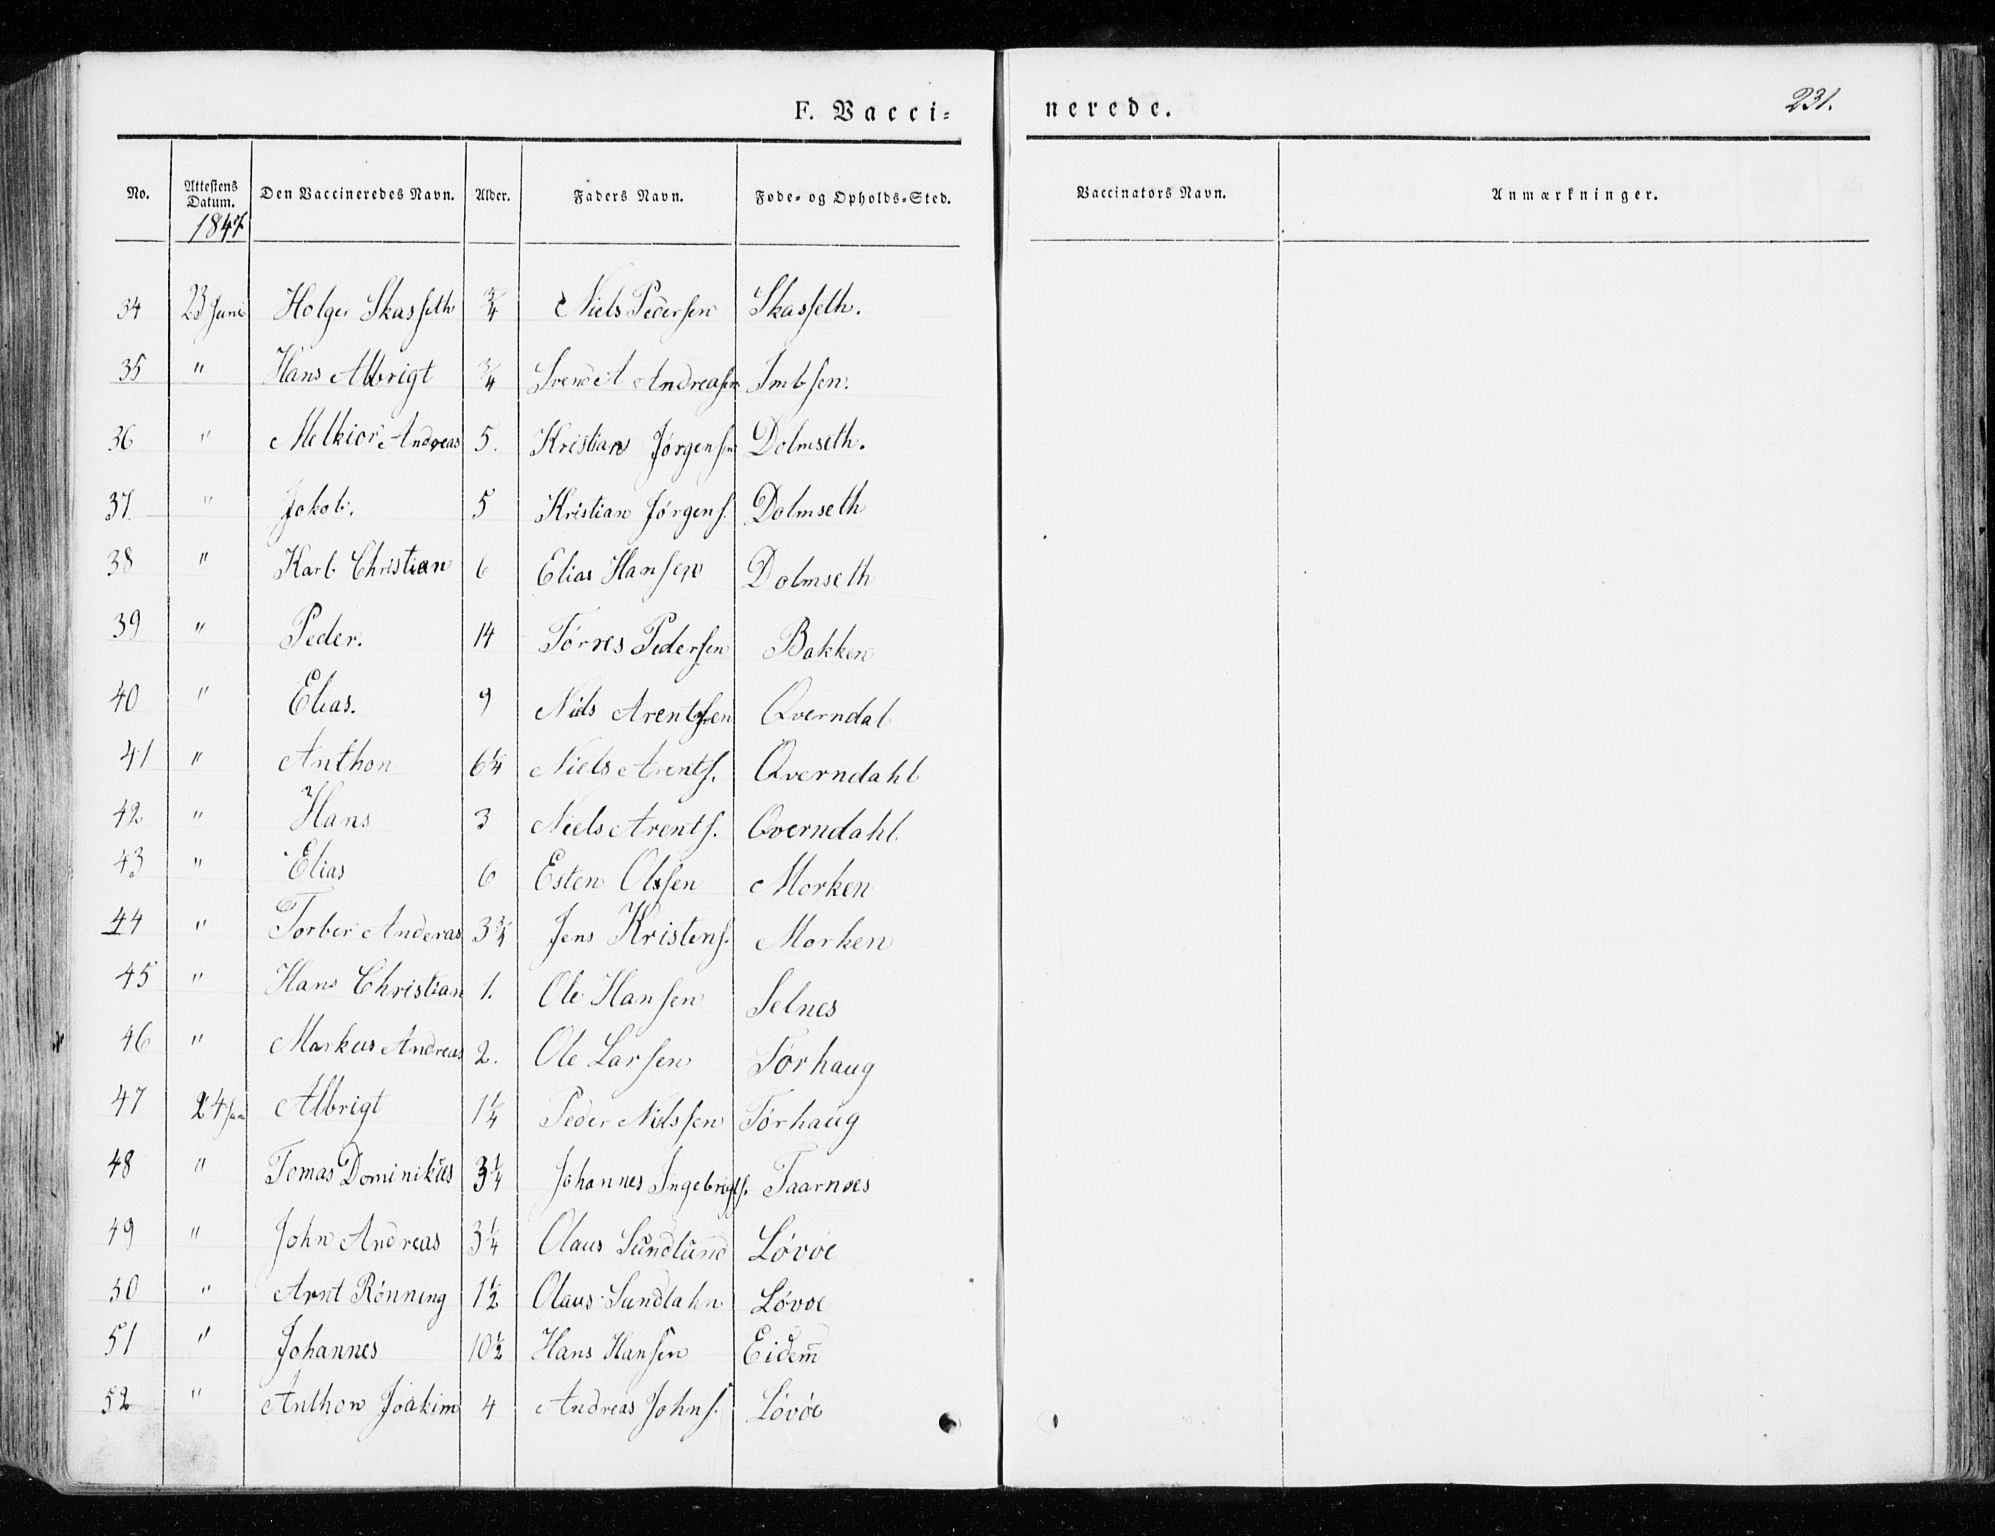 F. Vacci=
nerede.
231.
No. Attestens Datum. Den Vaccineredes Navn. Alder. Faders Navn. Føde= og Opholds=Sted. Vaccinators Navn. Anmærkninger.
1847
34 23 Juni Holger Skasseth 3/4 Niels Pedersen Skasseth.
35 " Hans Albrigt 3/4 Svend A Andreasen Imbsen.
36 " Melkior Andreas 5. Kristian Jørgensen Dolmseth.
37 " Jakob. 5 Kristian Jørgens. Dolmseth
38 " Karl Christian 6 Elias Hansen Dolmseth
39 " Peder. 14 Törres Pedersen Bakken
40 " Elias. 9 Niels Arentsen Qverndal
41 " Anthon 6 1/4 Niels Arents. Qverndahl
42 " Hans 3 Niels Arents. Qverndahl
43 " Elias 6 Esten Olssen Morken
44 " Torber Anderas 3 3/4 Jens Kristens. Morken
45 " Hans Christian 1. Ole Hansen Selnes
46 " Markus Andreas 2. Ole Larsen Tørhaug
47 24 Juni Albrigt 1 1/4 Peder Nielssen Tørhaug
48 " Tomas Dominikus 3 1/4 Johannes Ingebrigts. Taarnæs
49 " John Andreas 3 1/4 Olaus Sundlund Løvøe
50 " Arnt Rönning 1 1/2 Olaus Sundlahn Løvøe
51 " Johannes 10 1/2 Hans Hansen Eidem̅
52 " Anthon Joakim 4 Andreas Johns. Løvøe